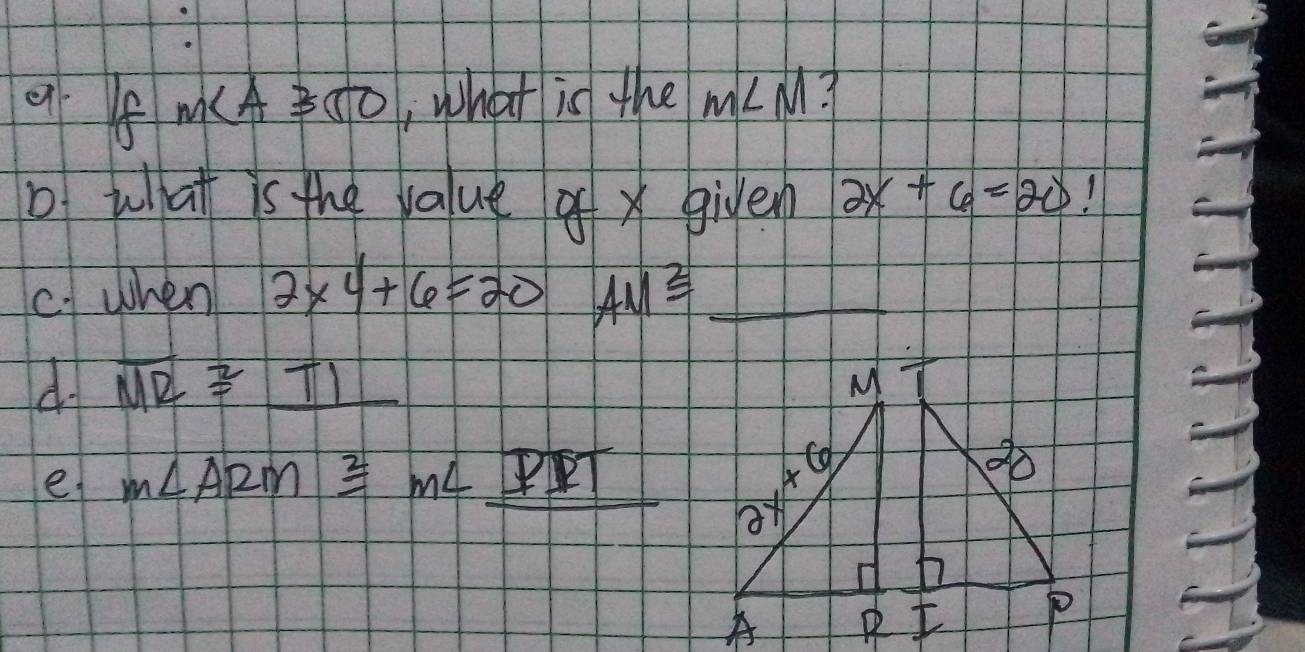 a. If m<A ≅ 50, what is the m∠M?
b. what is the value of x given 2x + 6 = 20!
c. when 2x4+6=20 AM ≅ ______
d. MR ≅ TI
e. m∠ARM ≅ m∠ PIT
M T
2x + 6
20
A R I P